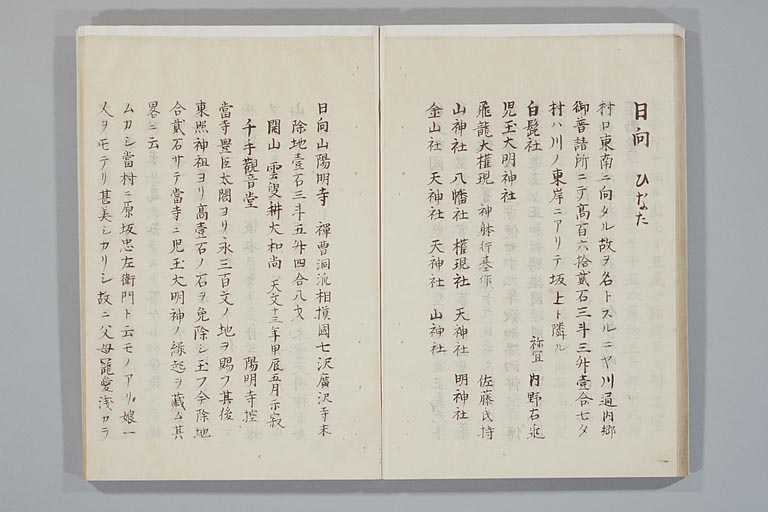 日向 ひなた
村口東南ニ向タル故ヲ名トスルニヤ川通内郷
御普請所ニテ高百六拾貳石三斗三舛壹合七夕
村ハ川ノ東岸ニアリテ坂上ト隣ル
白髭社 祢宜 内野右近
児玉大明神社
飛龍大権現 神躰行基作 佐藤氏持
山神社 八幡社 権現社 天神社 明神社
金山社 天神社 天神社 山神社
日向山陽明寺 禪曹洞派相模國七沢廣沢寺末
除地壹石三斗五舛四合八夕
開山 雲叟耕大和尚 天文十三年甲辰五月示寂
千手觀音堂 陽明寺控
當寺豊臣太閤ヨリ永三百文ノ地ヲ賜フ其後
東照神祖ヨリ高壹石ノ石ヲ免除シ玉フ今除地
合貳石サテ當寺ニ児玉大明神ノ縁起ヲ藏ム其
畧ニ云
ムカシ當村ニ原坂忠左衛門ト云モノアリ娘一
人ヲモテリ甚美シカリシ故ニ父母寵愛浅カラ